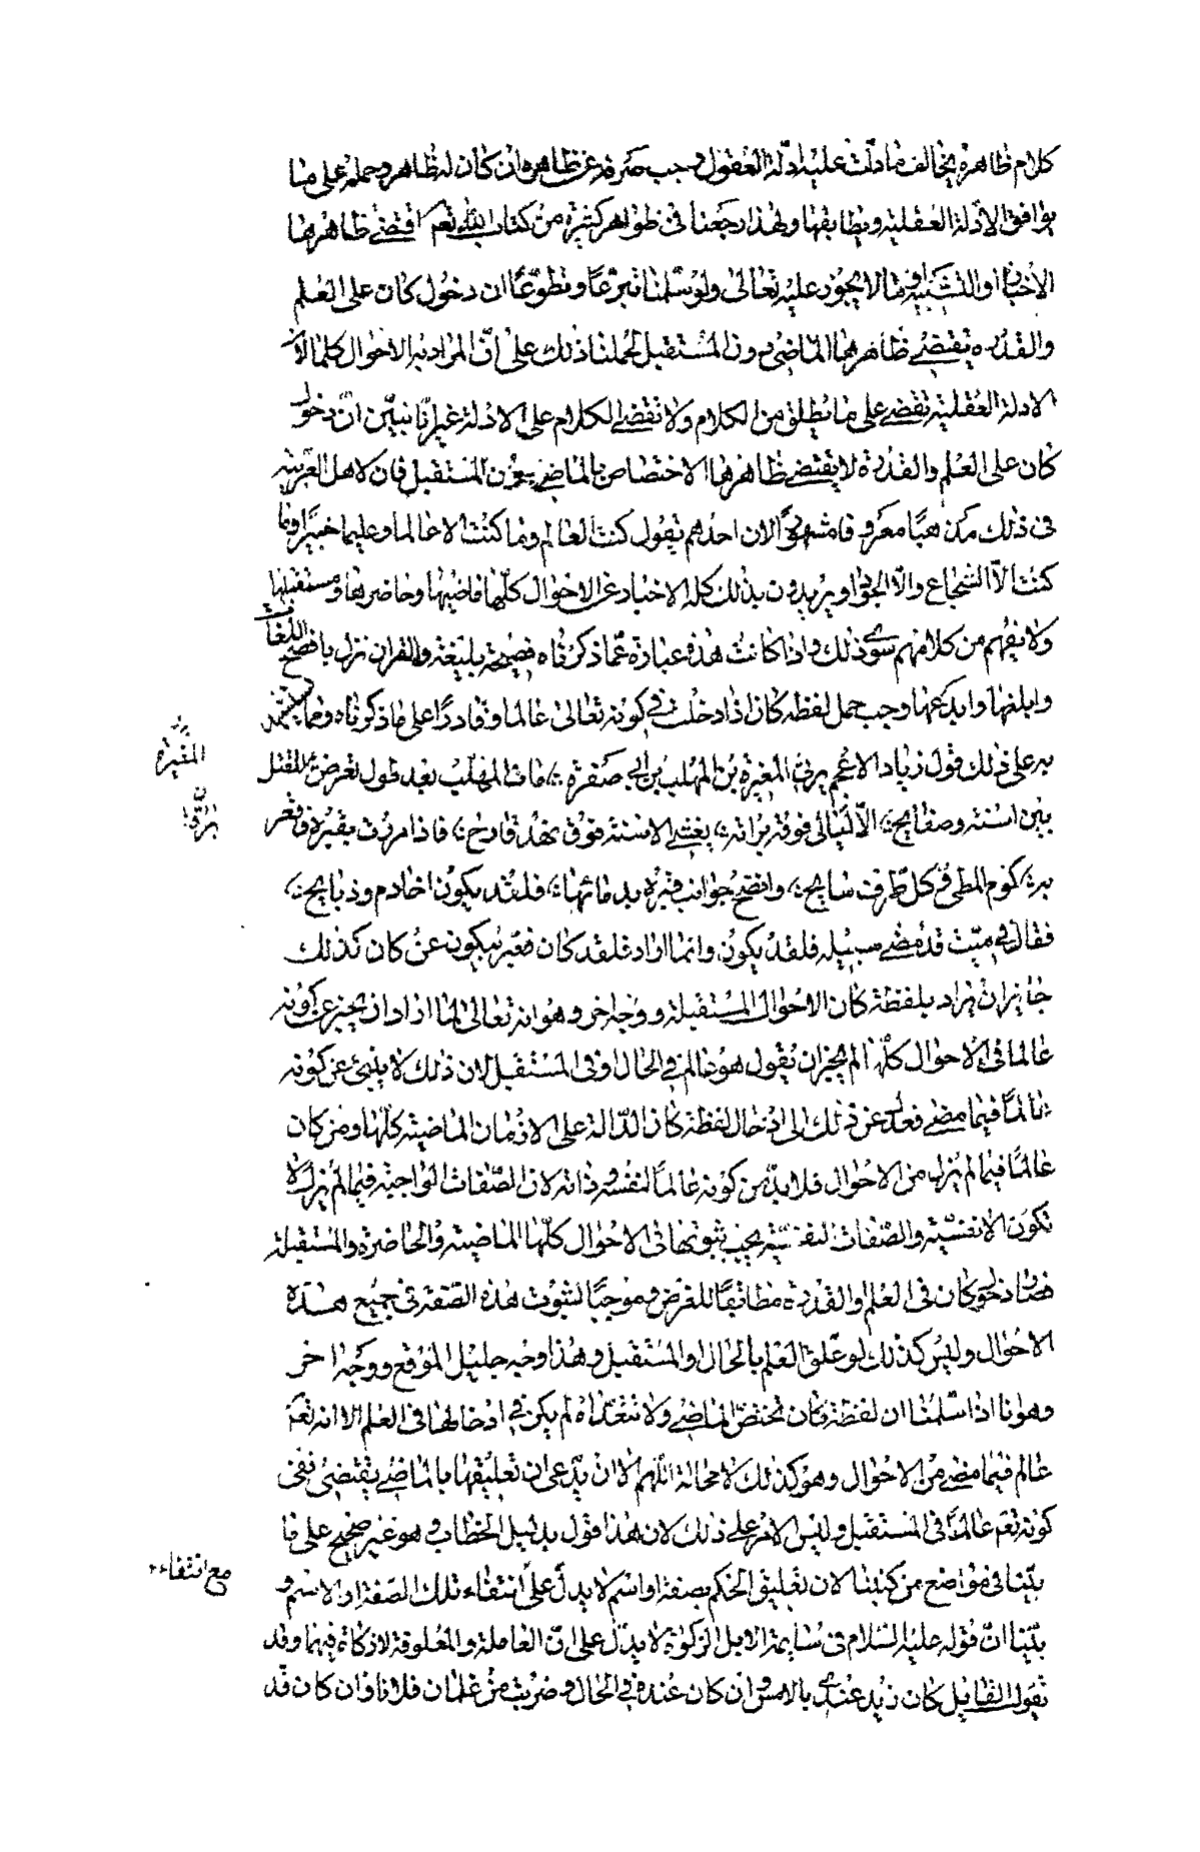 كلام ظاهره يخالف ما دلّت عليه ادلّة العقول وجب صرفه عن ظاهره ان كان له ظاهر وحمله على ما
يوافق الادلة العقلية ويطابقها ولهذا رجعنا فى ظواهر كثيرة من كتاب الله تعم اقتضى ظاهرها
الاجبار او التشبيه وما لا يجوز عليه تعالى ولو سلّمنا تبرّعًا وتطوّعًا ان دخول كان على العلم
والقدرة يقتضى ظاهرهما الماضى دون المستقبل لحملنا ذلك على انّ المراد به الاحوال كلها لان
الادلة العقلية تقضى على ما يطلق من الكلام ولا يقضى الكلام على الادلة غير انّا نبيّن انّ دخول
كان على العلم والقدرة لا يقتضى ظاهرهما الاختصاص بالماضى دون المستقبل فان لاهل العربية
فى ذلك مذهبًا معروفا مشهورًا لان احدهم يقول كنت العالم وما كنت الا عالما وعليما خبيرا وما
كنت الا الشجاع والا الجواد ويريدون بذلك كله الاخبار عن الاحوال كلّها ماضيها وحاضرها ومستقبلها
ولا يفهم من كلامهم سوى ذلك واذا كانت هذه عبارة عمّا ذكرناه فصيحة بليغة والقران نزل بافصح اللغات
وابلغها وابدعها وجب حمل لفظه كان اذا دخلت فى كونه تعالى عالما وقادرًا على ما ذكرناه ومما يستشهد
به على ذلك قول زياد الاعجم يرثى المغيرة بن المهلب بن ابى صفرة ؛ مات المهلّب بعد طول تعرض للقتل
المغيرة
بين اسنة وصفايح ؛ الّا ليالى فوقه بزاته ؛ يغشى الاسنة فوق نهد قارح ؛ فاذا مررت بقبره فاعقر
بزّاته
به ؛ كوم المطى وكل طرف سابح ؛ وانضح جوانب قبره بدمائها ؛ فلقد يكون اخا دم وذبايح ؛
فقال فى ميّت قد مضى سبيله فلقد يكون وانما اراد فلقد كان فعبّر بيكون عن كان كذلك
جايز ان يراد بلفظة كان الاحوال المستقبلة ووجه اخر وهو انه تعالى لما اراد ان يخبر عن كونه
عالما فى الاحوال كلّها لم يجز ان يقول هو عالم فى الحال وفى المستقبل لان ذلك لا ينبئ عن كونه
عالمًا فيما مضى فعدل عن ذلك الى ادخال لفظة كان الدّالة على الازمان الماضية كلّها ومن كان
عالمًا فيما لم يزل من الاحوال فلا بدّ من كونه عالمًا لنفسه وذاته لان الصّفات الواجبة فيما لم يزل لا
تكون الا نفسيّة والصّفات النفسيّة يجب ثبوتها فى الاحوال كلّها الماضية والحاضرة والمستقبلة
فصار دخول كان فى العلم والقدرة مطابقًا للغرض وموجبًا لثبوت هذه الصّفة فى جميع هذه
الاحوال وليس كذلك لو علّق العلم بالحال او المستقبل وهذا وجه جليل الموقع ووجه اخر
وهو انا اذا سلّمنا ان لفظة كان تختصّ الماضى ولا تتعدّاه لم يكن فى ادخالها فى العلم الا انه تعم
عالم فيما مضى من الاحوال وهو كذلك لا محالة اللّهم الا ان يدّعى ان تعليقها بالماضى يقتضى نفى
كونه تعم عالمًا فى المستقبل وليس الامر على ذلك لان هذا قول بدليل الخطاب وهو غير صحيح على ما
بيّنا فى مواضع من كتبنا لان تعليق الحكم بصفة او اسم لا يدلّ على انتفاء تلك الصّفة او الاسم و
مع انتفاء
بيّنا انّ قوله عليه السّلام فى سايمة الابل الزكوة لا يدلّ على انّ العاملة والمعلوفة لا زكاة فيهما وقد
يقول القايل كان زيد عندى بالامس وان كان عنده فى الحال وضربت من غلمان فلانا وان كان قد